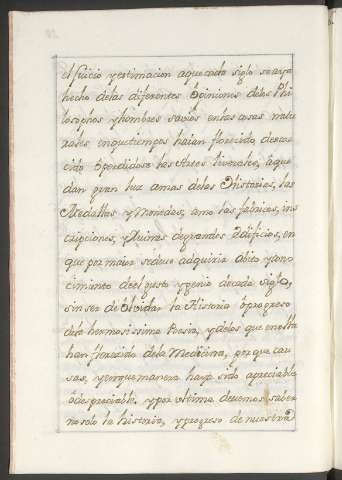 el Juicio y estimacion aque cada siglo se aya
hecho delas diferentes Opiniones delos Phi
losophos y hombres savios enlas cosas natu
rales enquetiempos haian florecido, descae
cido o perdidose las Artes liverales, aque
dan gran luz amas delas Historias, las
Medallas y Monedas, amo las fabricas, ins
cripciones, y Ruinas degrandes Edificios, en
que por maior sedeve adquirir Abito y cono
cimiento deel gusto y genio decada siglo,
sin ser de olvidar la Historia o progreso
dela hermosissima Poesia, y delos que en ella
han florecido dela Medicina, por que cau
sas, y enque manera haya sido apreciable
o despreciable, y por ultimo devemos saber
no solo la historia, y progreso de nuestra